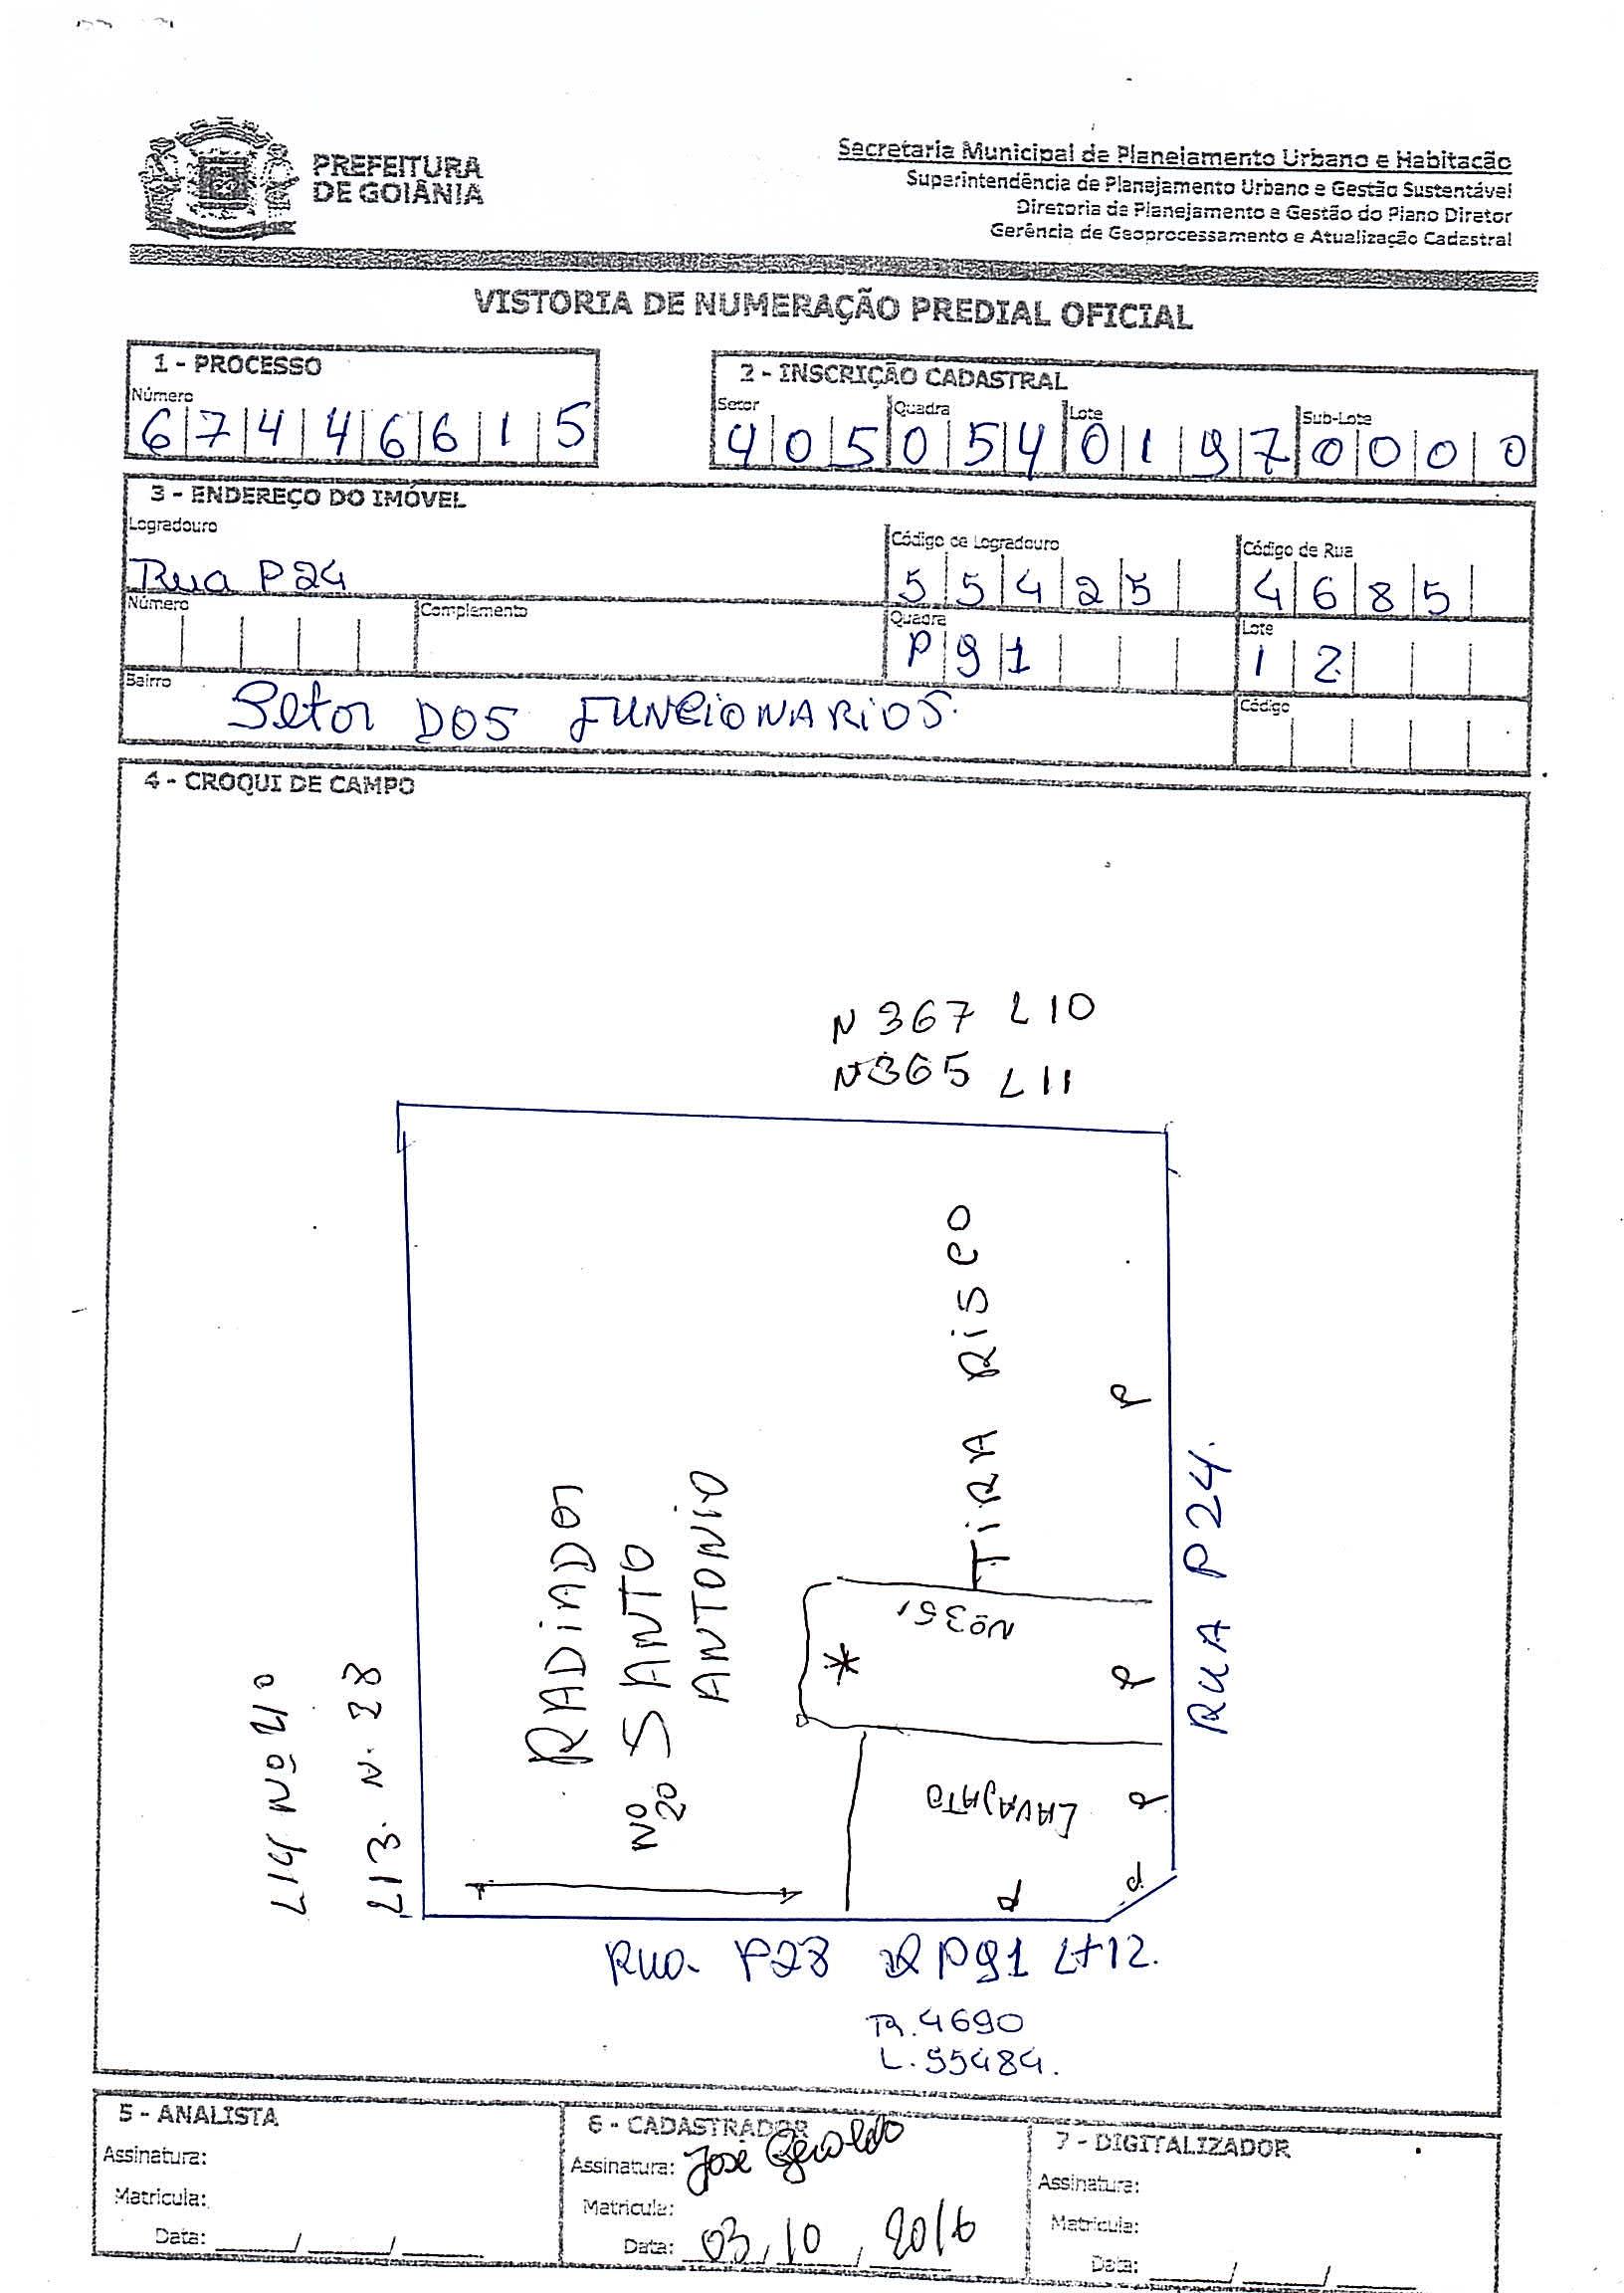 PREFEITURA
DE GOIÂNIA
Secretaria Municipal de Planejamento Urbano e Habitação
Superintendência de Planejamento Urbano e Gestão Sustentável
Diretoria de Planejamento e Gestão do Plano Diretor
Gerência de Geoprocessamento e Atualização Cadastral
VISTORIA DE NUMERAÇÃO PREDIAL OFICIAL
1 - PROCESSO
Número
67446615
2 - INSCRIÇÃO CADASTRAL
Setor Quadra Lote Sub-Lote
405 054 0197 0000
3 - ENDEREÇO DO IMÓVEL
Logradouro Código de Logradouro Código de Rua
Rua P24 55425 4685
Número Complemento Quadra Lote
P91 12
Bairro Código
Setor DOS FUNCIONARIOS.
4 - CROQUI DE CAMPO
N 367 L 10
N 365 L 11
TIRA RISCO
RADIADOR
SANTO
ANTONIO
Nº
20
Nº 351
*
P
P
P
P
P
LAVAJATO
RUA P24.
L14 Nº
L13. N. 28
Rua P28 Q P91 Lt12.
R. 4690
L. 55484.
5 - ANALISTA
Assinatura:
Matricula:
Data: ___/___/___
6 - CADASTRADOR
Assinatura: José Geraldo
Matricula:
Data: 03/10/2016
7 - DIGITALIZADOR
Assinatura:
Matricula:
Data: ___/___/___